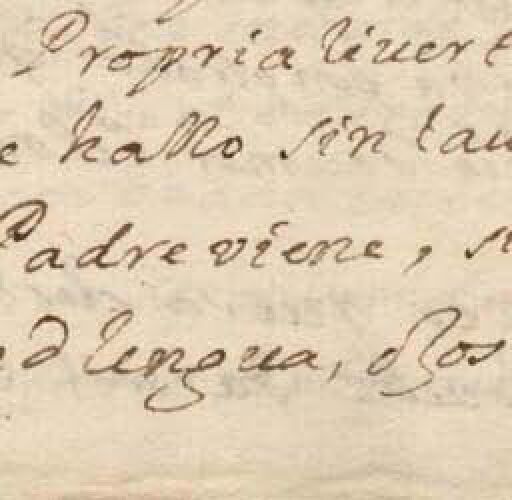 Propria liuert
e hallo sin lau
Padre viene, s
d lengua, Dios